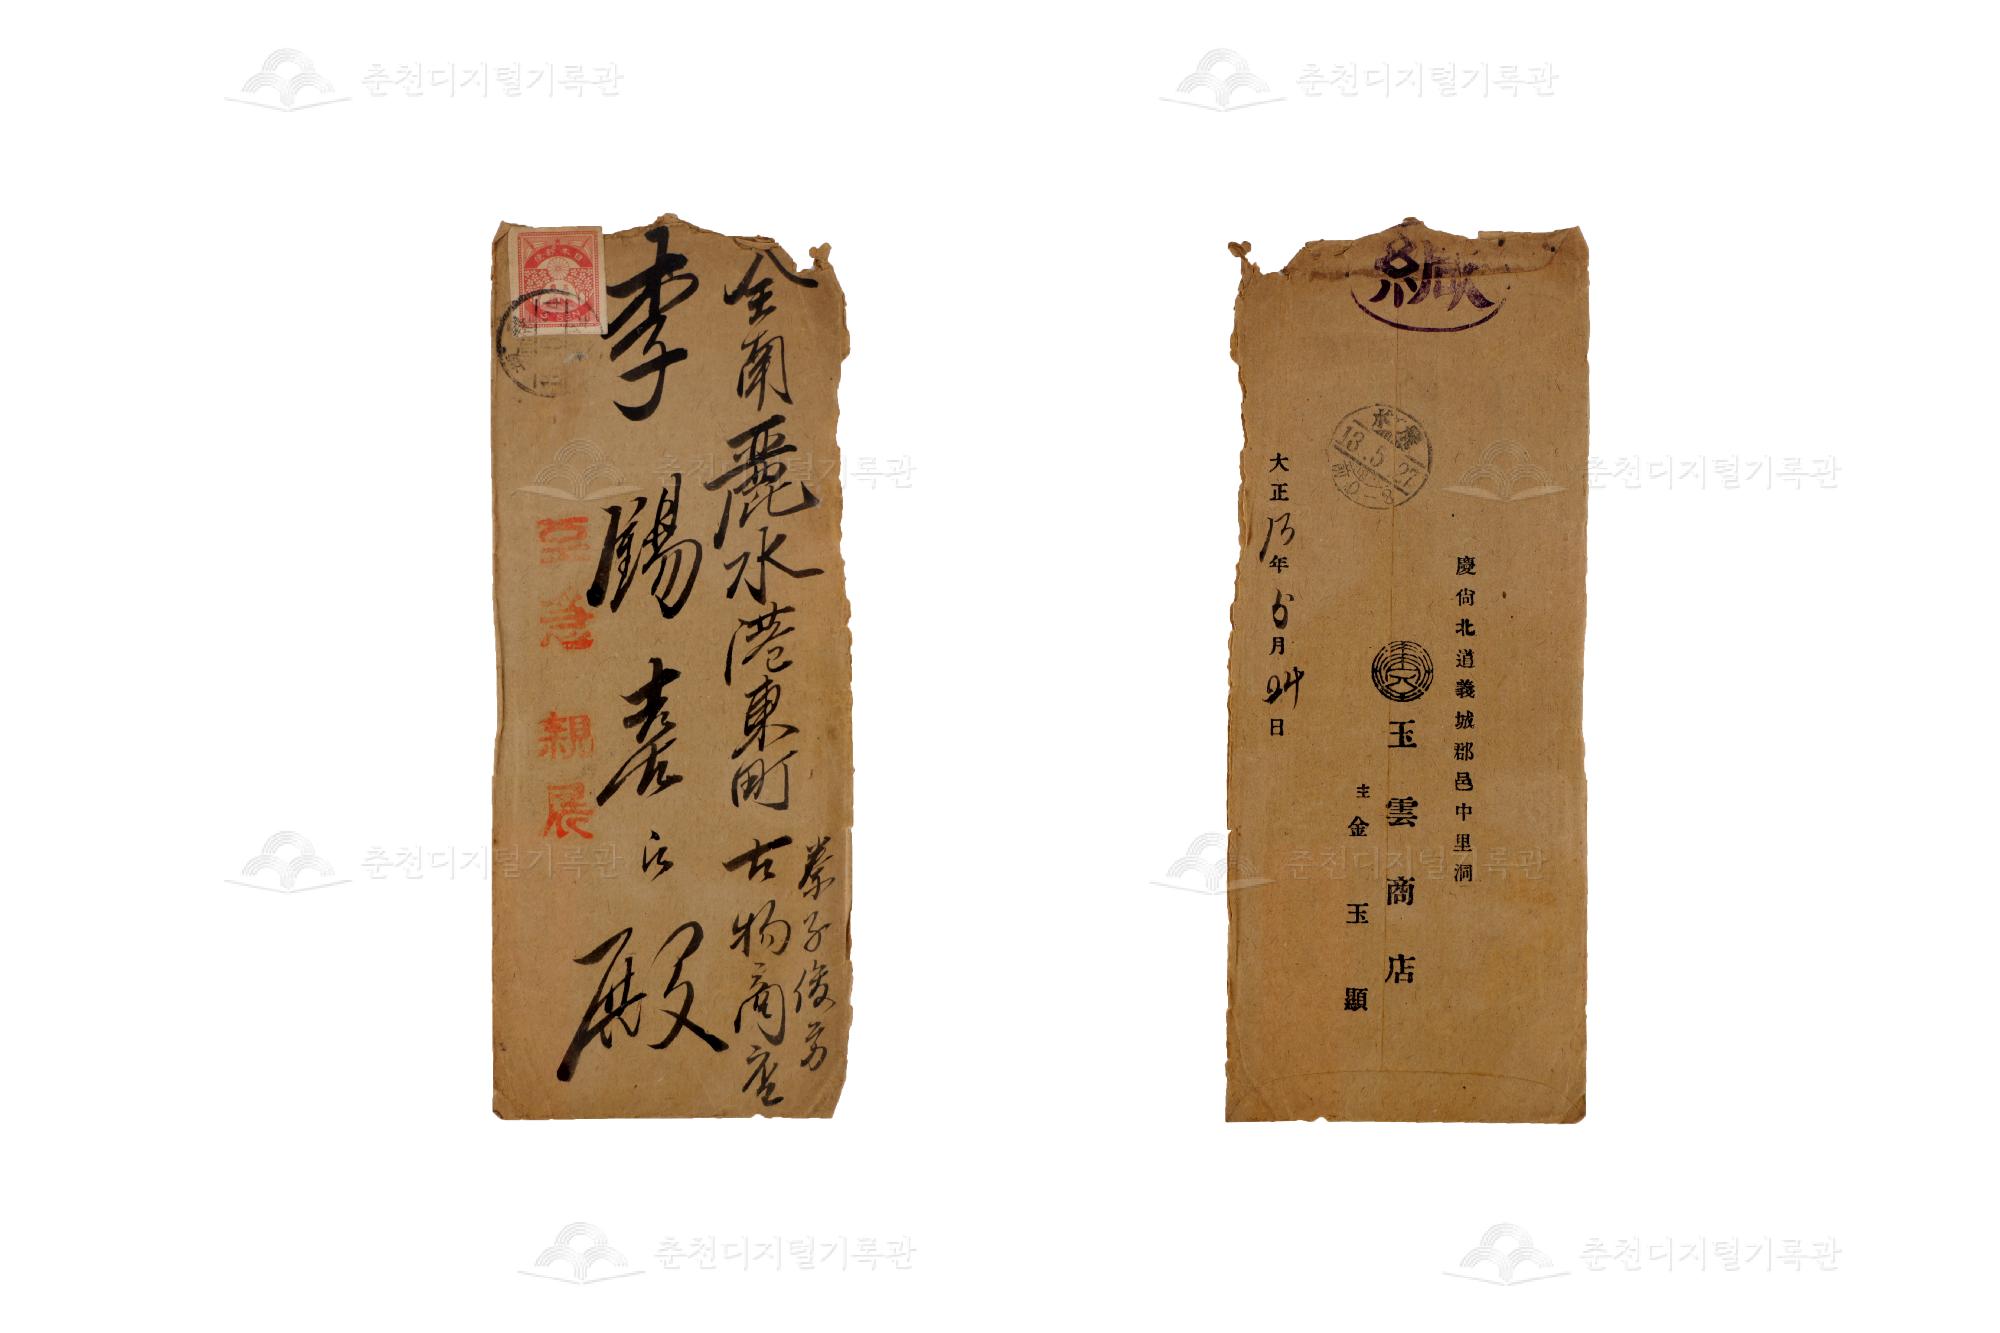 춘천디지털기록관
춘천디지털기록관
全南麗水港東町古物商店
李錫春氏殿
至急 親展
춘천디지털기록관
춘천디지털기록관
緘
水
13.5.27
慶尙北道義城郡邑中里洞
玉雲商店
主金玉顯
大正13年5月24日
춘천디지털기록관
춘천디지털기록관
춘천디지털기록관
춘천디지털기록관